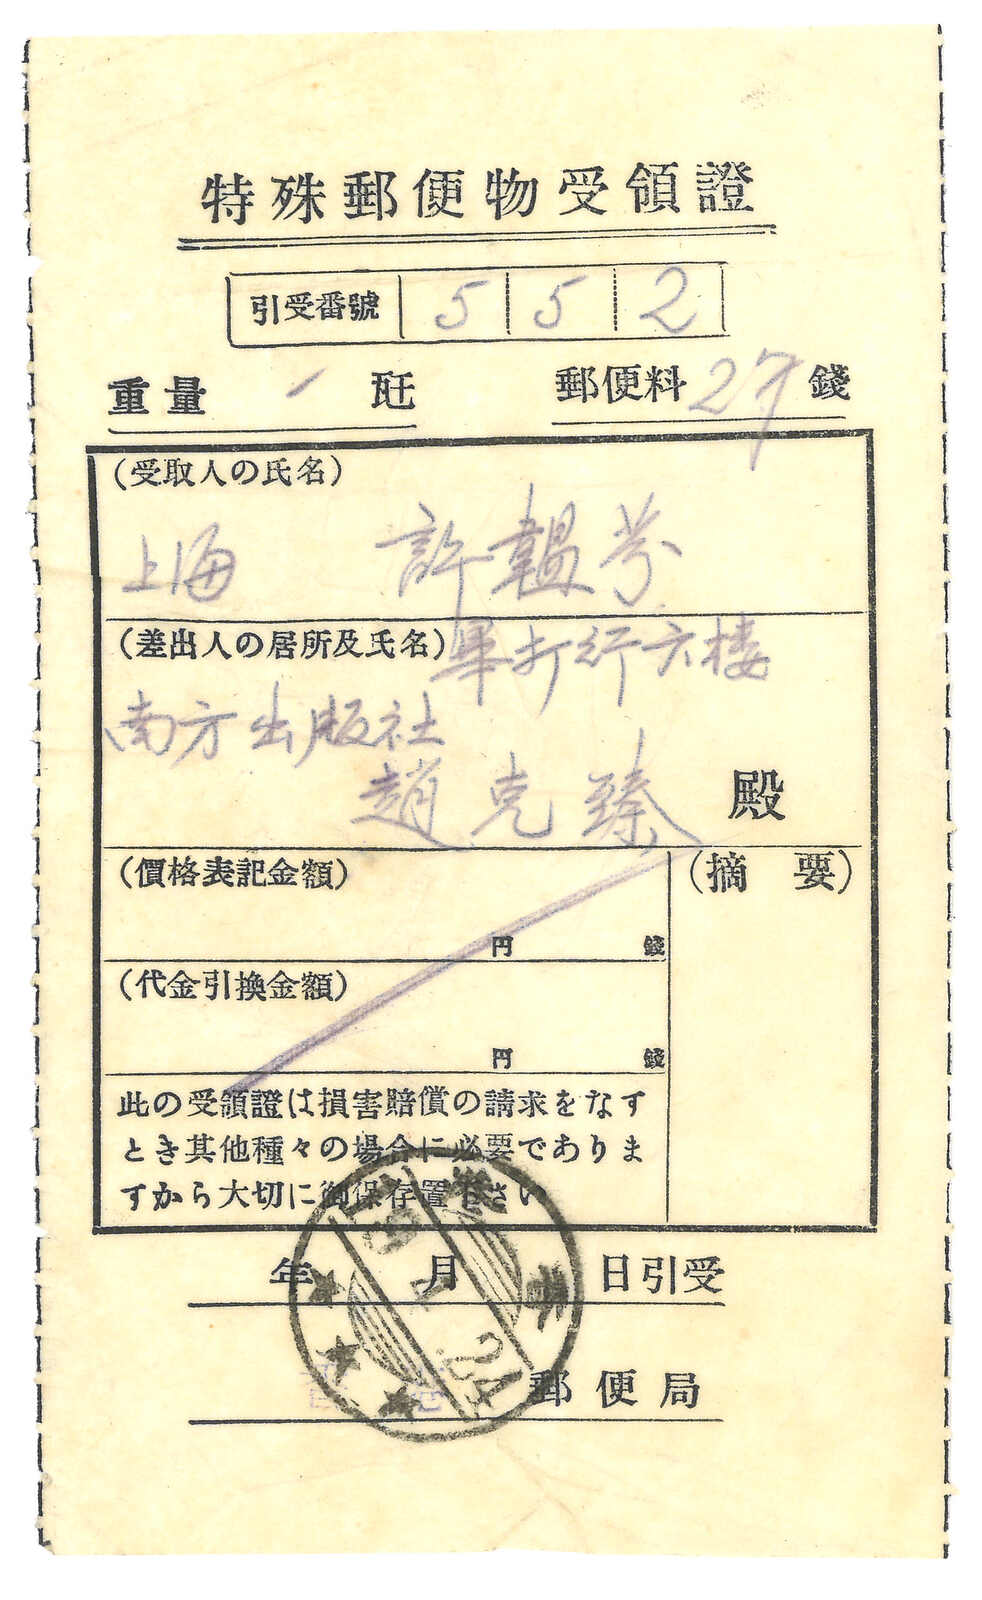 特殊郵便物受領證
引受番號 5 5 2
重量 瓩 郵便料 27 錢
(受取人の氏名)
上海 許韞芬
(差出人の居所及氏名) 畢打行六楼
南方出版社
趙克臻 殿
(價格表記金額) (摘要)
円 錢
(代金引換金額)
円 錢
此の受領證は損害賠償の請求をなす
とき其他種々の場合に必要でありま
すから大切に御保存置下さい
年 月 日引受
郵便局
香
24